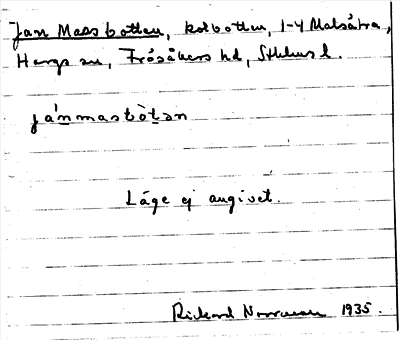 Jan Mass botten, kolbotten, 1-4 Malsätra,
Hargs sn, Frösåkers hd, Sthlms l.
ja´nmasbòtən
Läge ej angivet.
Rickard Norrman 1935.